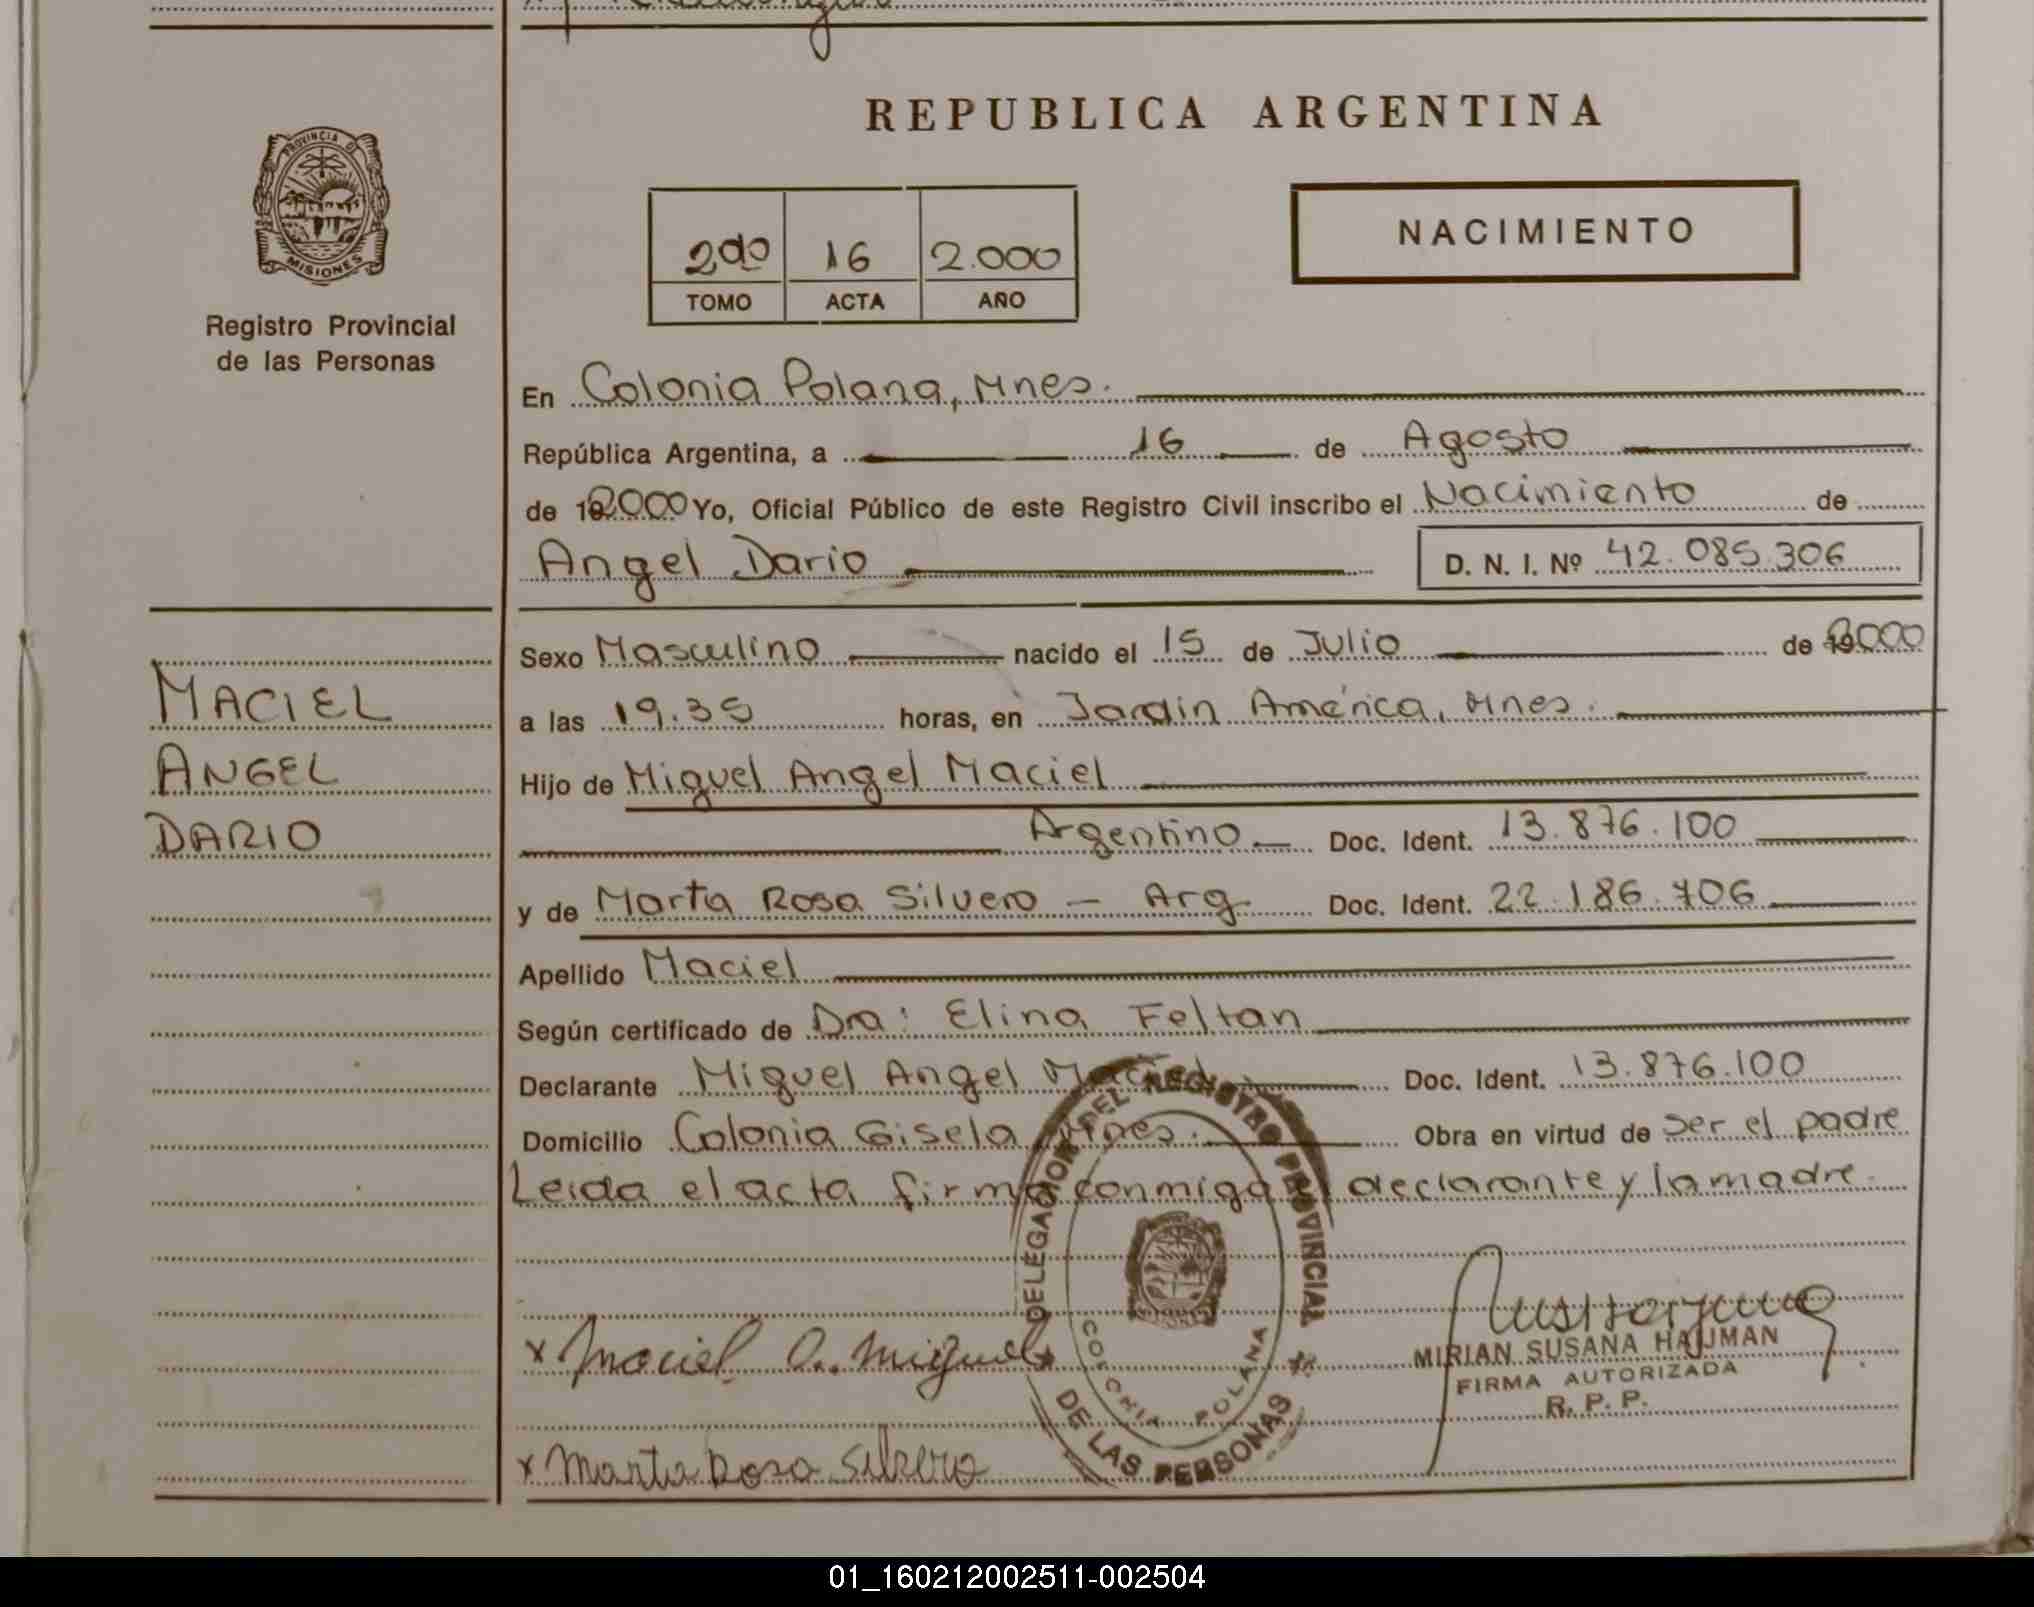 REPUBLICA ARGENTINA
PROVINCIA DE
MISIONES
Registro Provincial
de las Personas
2do 16 2.000
TOMO ACTA AÑO
NACIMIENTO
En Colonia Polana, Mnes.
República Argentina, a 16 de Agosto
de 2000 Yo, Oficial Público de este Registro Civil inscribo el Nacimiento de
Angel Dario D. N. I. Nº 42.085.306
MACIEL
ANGEL
DARIO
Sexo Masculino nacido el 15 de Julio de 2000
a las 19.35 horas, en Jardin América, Mnes.
Hijo de Miguel Angel Maciel
Argentino Doc. Ident. 13.876.100
y de Marta Rosa Silvero - Arg Doc. Ident. 22.186.706
Apellido Maciel
Según certificado de Dra: Elina Feltan
Declarante Miguel Angel Maciel Doc. Ident. 13.876.100
Domicilio Colonia Gisela Mnes. Obra en virtud de ser el padre
Leida el acta firma conmigo el declarante y la madre.
DELEGACION DEL REGISTRO PROVINCIAL
DE LAS PERSONAS
COLONIA POLANA
x Maciel A. Miguel
MIRIAN SUSANA HAJMAN
FIRMA AUTORIZADA
R. P. P.
x Marta Rosa Silvero
01_160212002511-002504